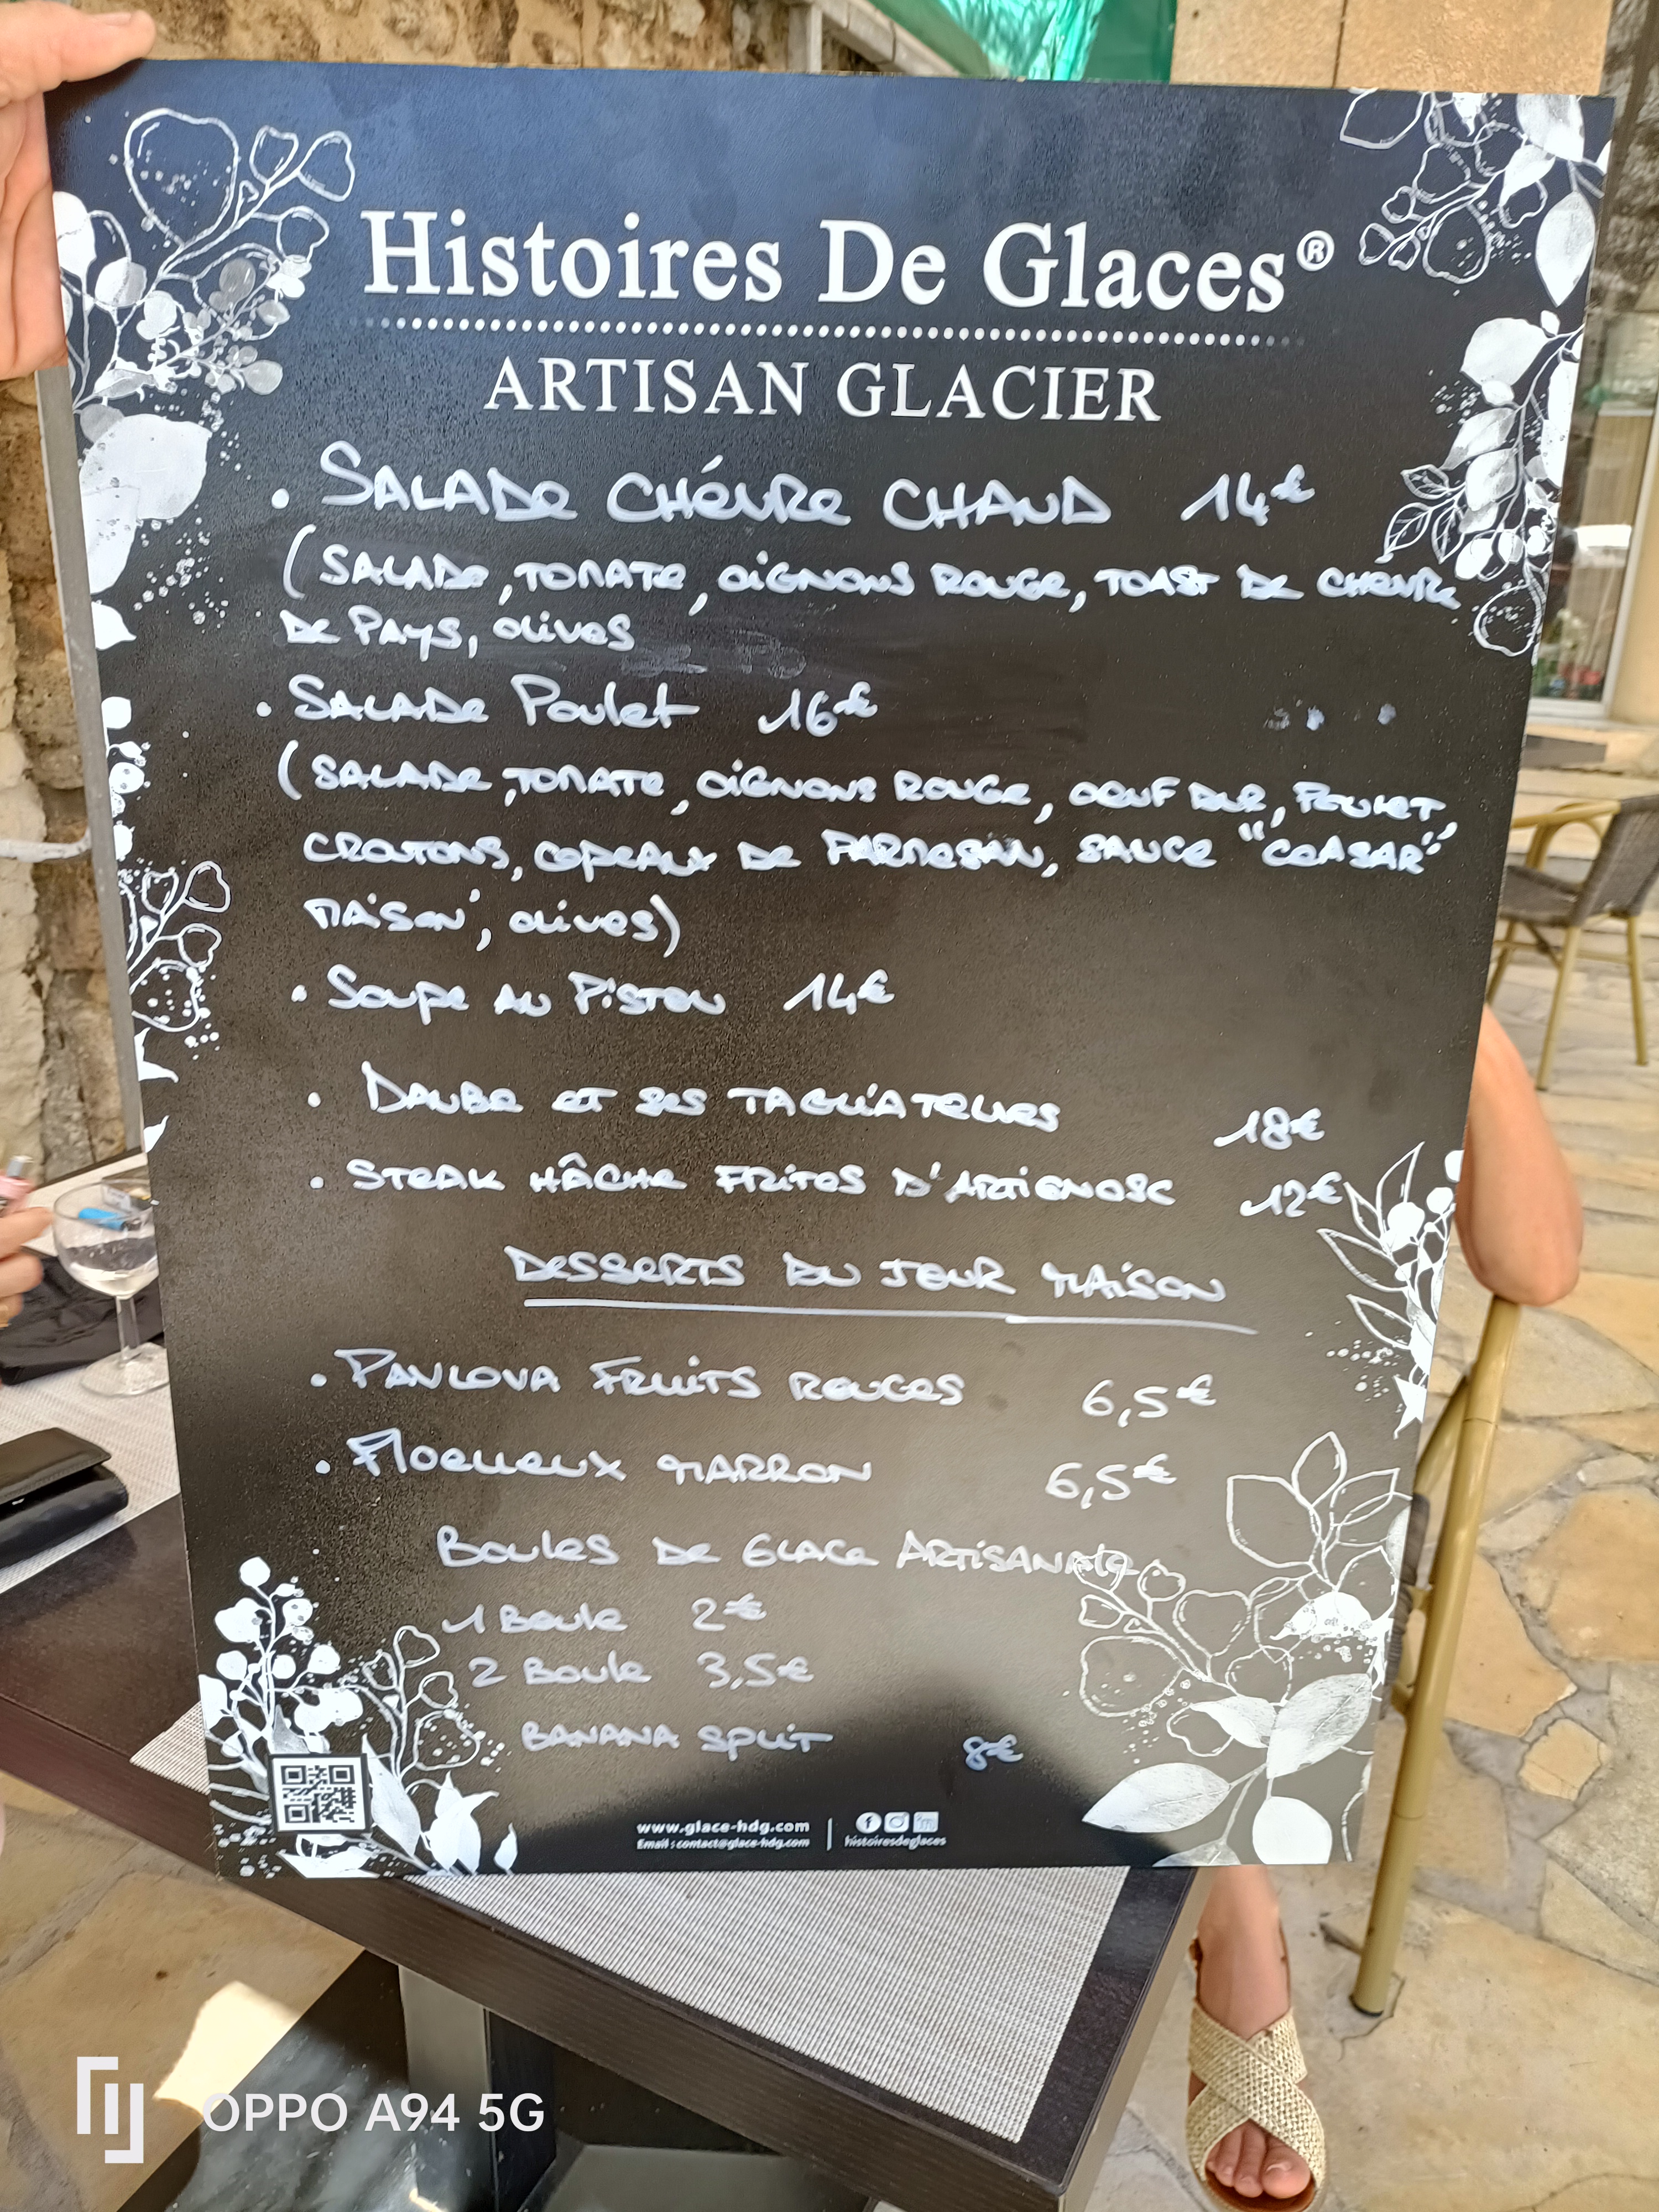 Histoires De Glaces®
ARTISAN GLACIER
• SALADe CHévRe CHAUD 14€
(SALADe, TOMATe, OiGNONS ROUGe, TOAST De CHevRe
De PAYS, olives
• SALADe Poulet 16€
(SALADe, TOMATe, OiGNONS ROUGe, OeUF DUR, POULeT,
CROUTONS, COPeAUX De PARMeSAN, SAUCe "CeASAR"
MAiSON, olives)
• Soupe AU PiSTOU 14€
• DAUBe eT SeS TAGLiATeLLeS 18€
• STeAK HÂCHe FRiTeS D'ARTiGNOSC 12€
DeSSeRTS DU JOUR MAiSON
• PAVLOVA FRUiTS ROUGeS 6,5€
• MOeLLeUX MARRON 6,5€
BOULeS De GLACe ARTiSANALe
1 Boule 2€
2 Boule 3,5€
BANANA SPLiT 8€
www.glace-hdg.com
Email : contact@glace-hdg.com
histoiresdeglaces
OPPO A94 5G